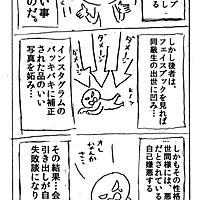 プし
る。
い事
のだ。
しかし後者は、
フェイスブックを見れば
同級生の出世に凹み…
ダメージ
ダメージ
ダメージ
インスタグラムの
バッキバキに補正
された品のいい
写真を妬み…
オレ
なんか
さ…
しかもその性格
世間様には、悪
だとされている
自己嫌悪する
その結果…会
引き出しが自
失敗談になり